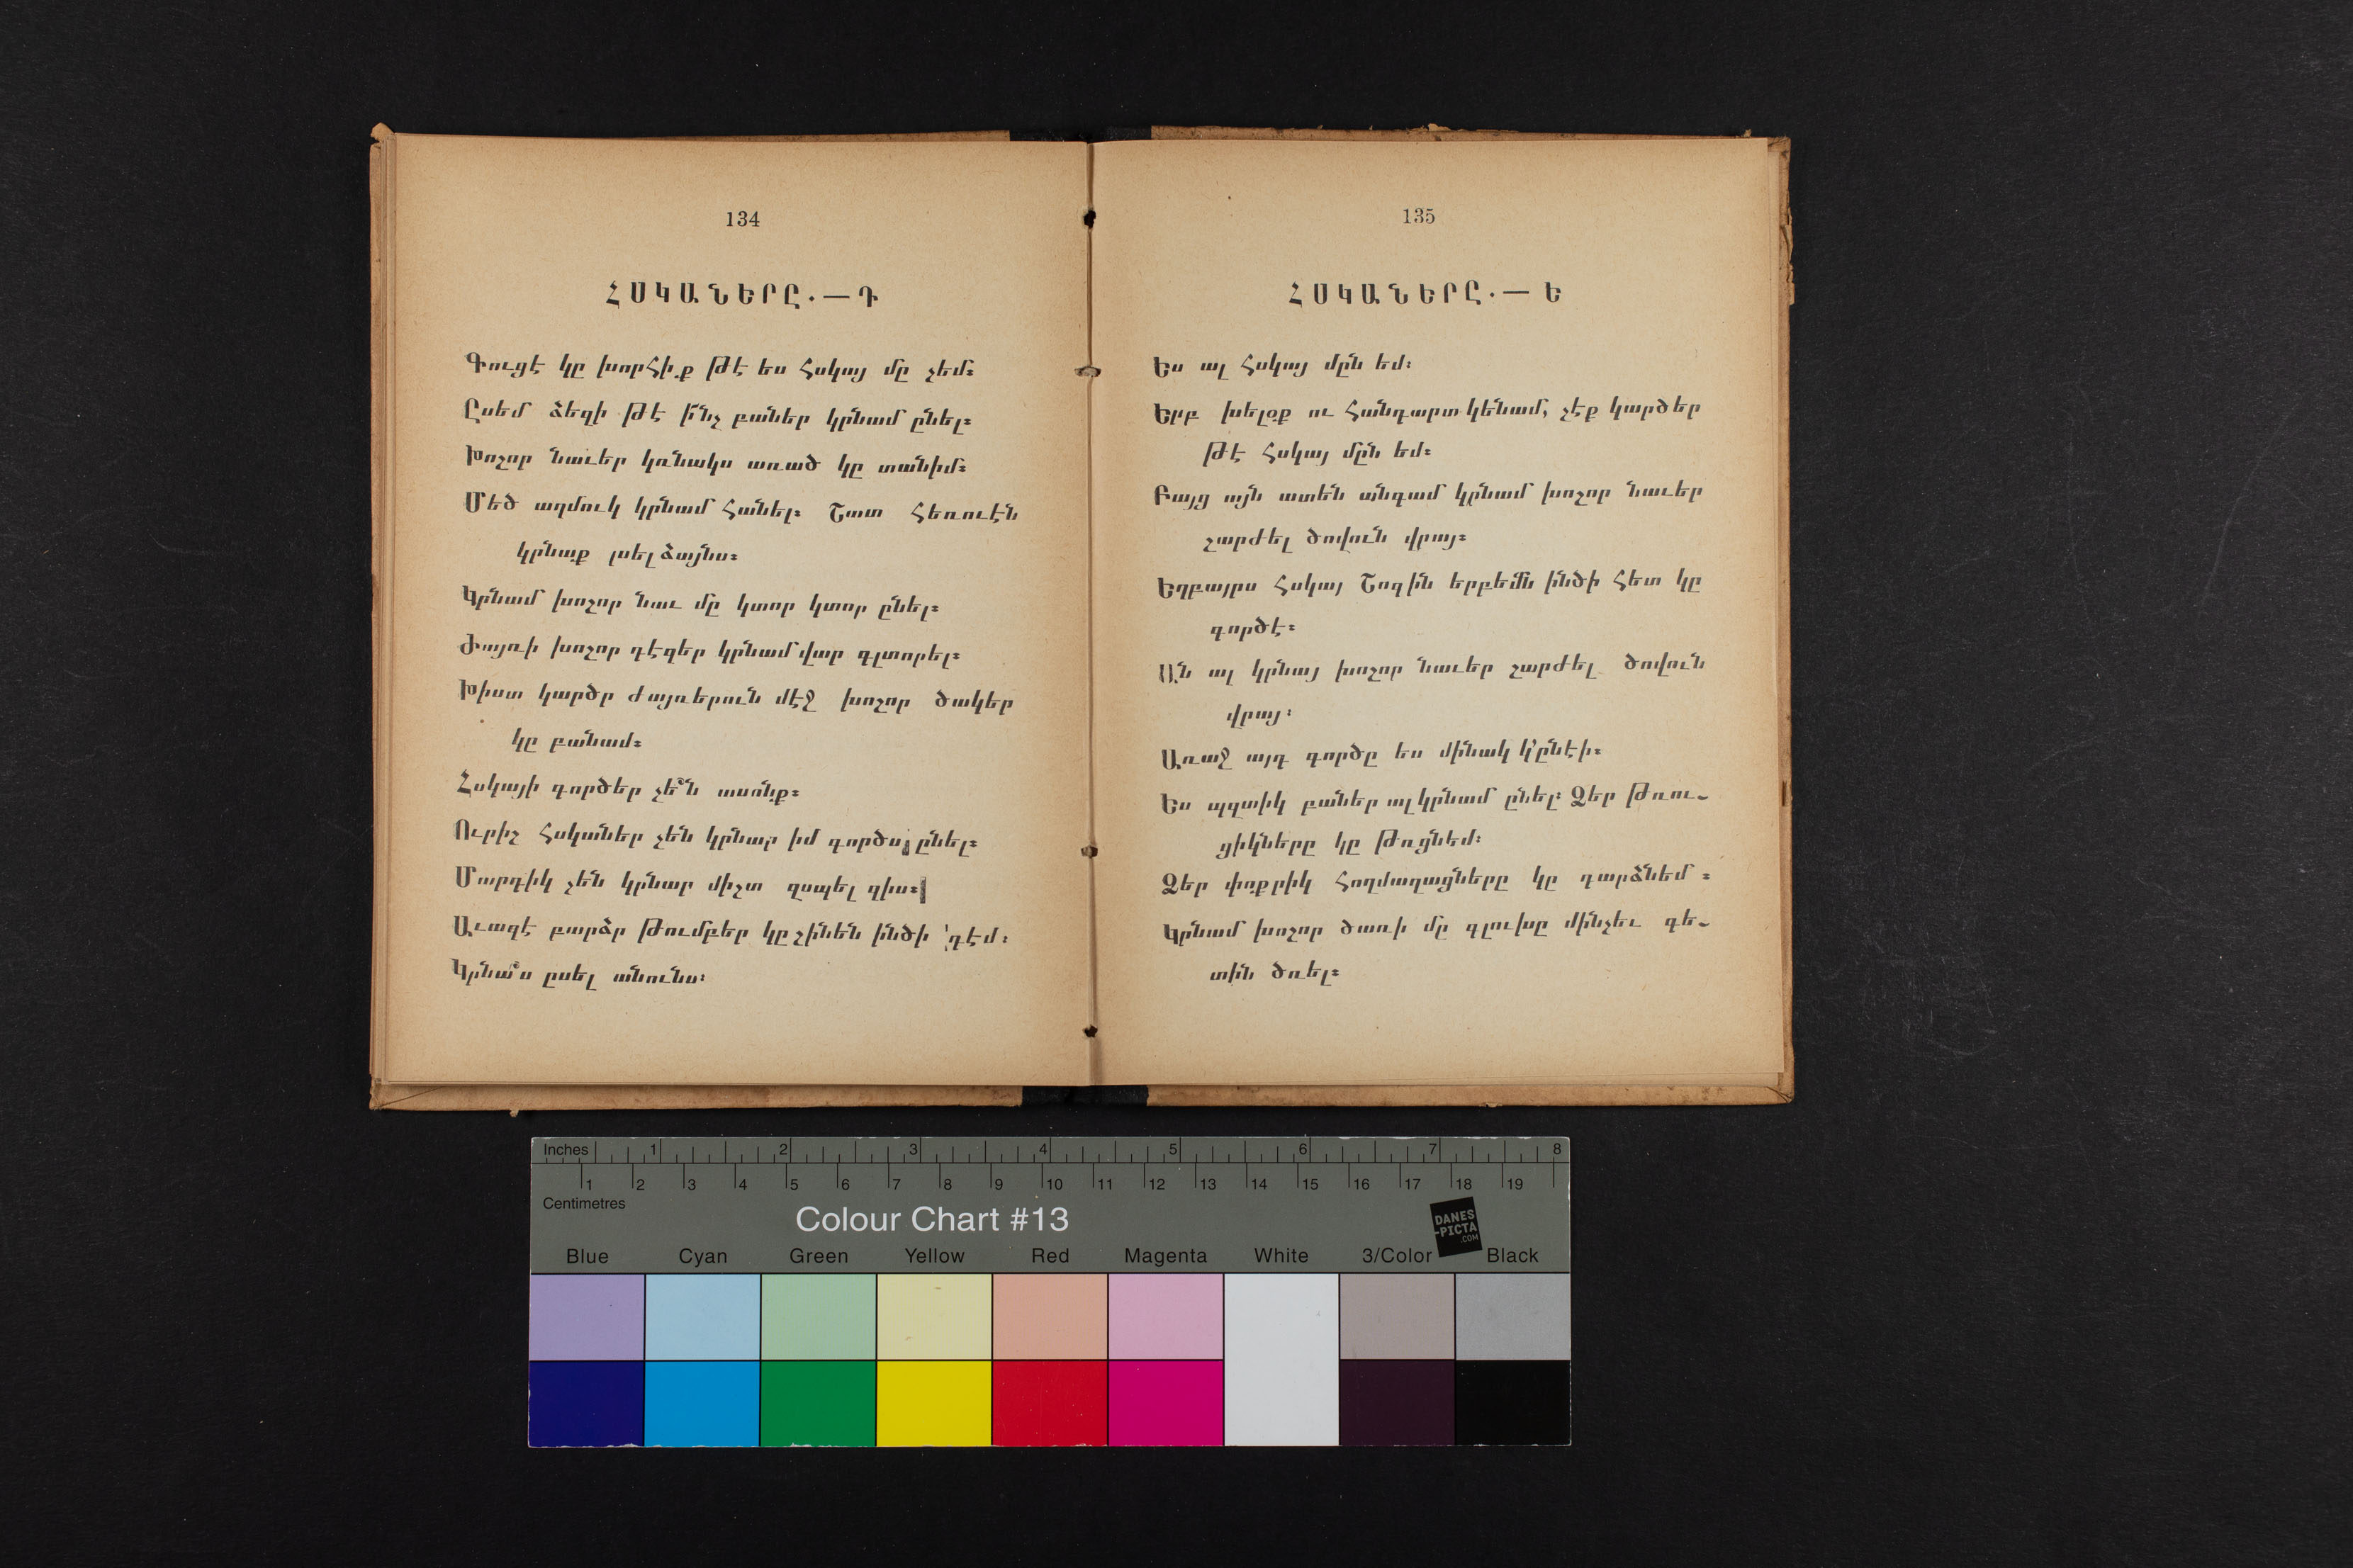 134
ՀՍԿԱՆԵՐԸ.— Դ
Գուցէ կը խորհիք թէ ես հսկայ մը չեմ։
Ըսեմ ձեզի թէ ի՛նչ բաներ կրնամ ընել։
Խոշոր նաւեր կռնակս առած կը տանիմ։
Մեծ աղմուկ կրնամ հանել։ Շատ հեռուէն
կրնաք լսել ձայնս։
Կրնամ խոշոր նաւ մը կտոր կտոր ընել։
Ժայռի խոշոր դէզեր կրնամ վար գլտորել։
Խիստ կարծր ժայռերուն մէջ խոշոր ծակեր
կը բանամ։
Հսկայի գործեր չե՞ն ասոնք։
Ուրիշ հսկաներ չեն կրնար իմ գործս ընել։
Մարդիկ չեն կրնար միշտ զսպել զիս։
Աւազէ բարձր թումբեր կը շինեն ինծի դէմ։
Կրնա՞ս ըսել անունս։
135
ՀՍԿԱՆԵՐԸ.— Ե
Ես ալ հսկայ մըն եմ։
Երբ խելօք ու հանդարտ կենամ, չէք կարծեր
թէ հսկայ մըն եմ։
Բայց այն ատեն անգամ կրնամ խոշոր նաւեր
շարժել ծովուն վրայ։
Եղբայրս հսկայ Շոգին երբեմն ինծի հետ կը
գործէ։
Ան ալ կրնայ խոշոր նաւեր շարժել ծովուն
վրայ։
Առաջ այդ գործը ես մինակ կ՚ընէի։
Ես պզտիկ բաներ ալ կրնամ ընել։ Ձեր թռու-
ցիկները կը թռցնեմ։
Ձեր փոքրիկ հողմաղացները կը դարձնեմ։
Կրնամ խոշոր ծառի մը գլուխը մինչեւ գե-
տին ծռել։
Inches 1 2 3 4 5 6 7 8
1 2 3 4 5 6 7 8 9 10 11 12 13 14 15 16 17 18 19
Centimetres
Colour Chart #13
DANES
-PICTA
.COM
Blue Cyan Green Yellow Red Magenta White 3/Color Black